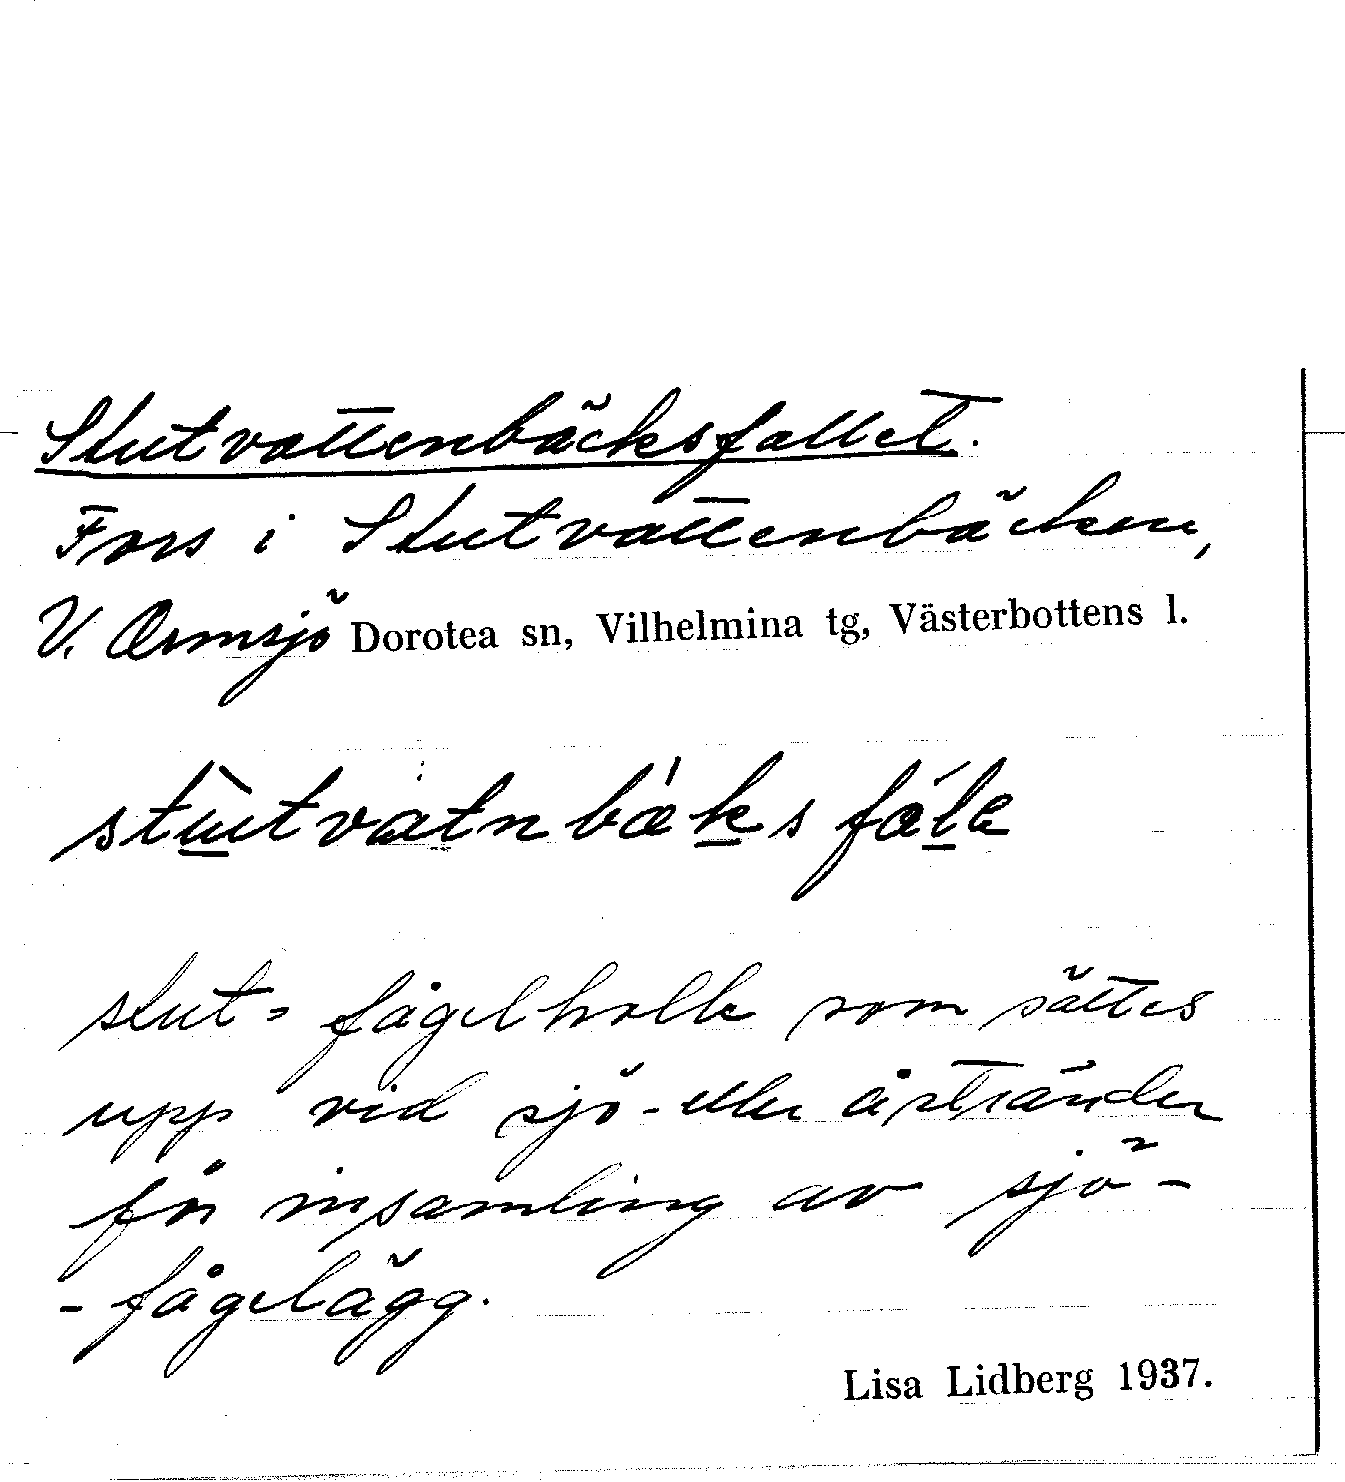 Stutvattenbäcksfallet.
Fors i Stutvattenbäcken,
V. Ormsjö Dorotea sn, Vilhelmina tg, Västerbottens l.
stùtvatnbǽksfálɛ
stut = fågelholk som sättes
upp vid sjö- eller åstränder
för insamling av sjö-
-fågelägg.
Lisa Lidberg 1937.